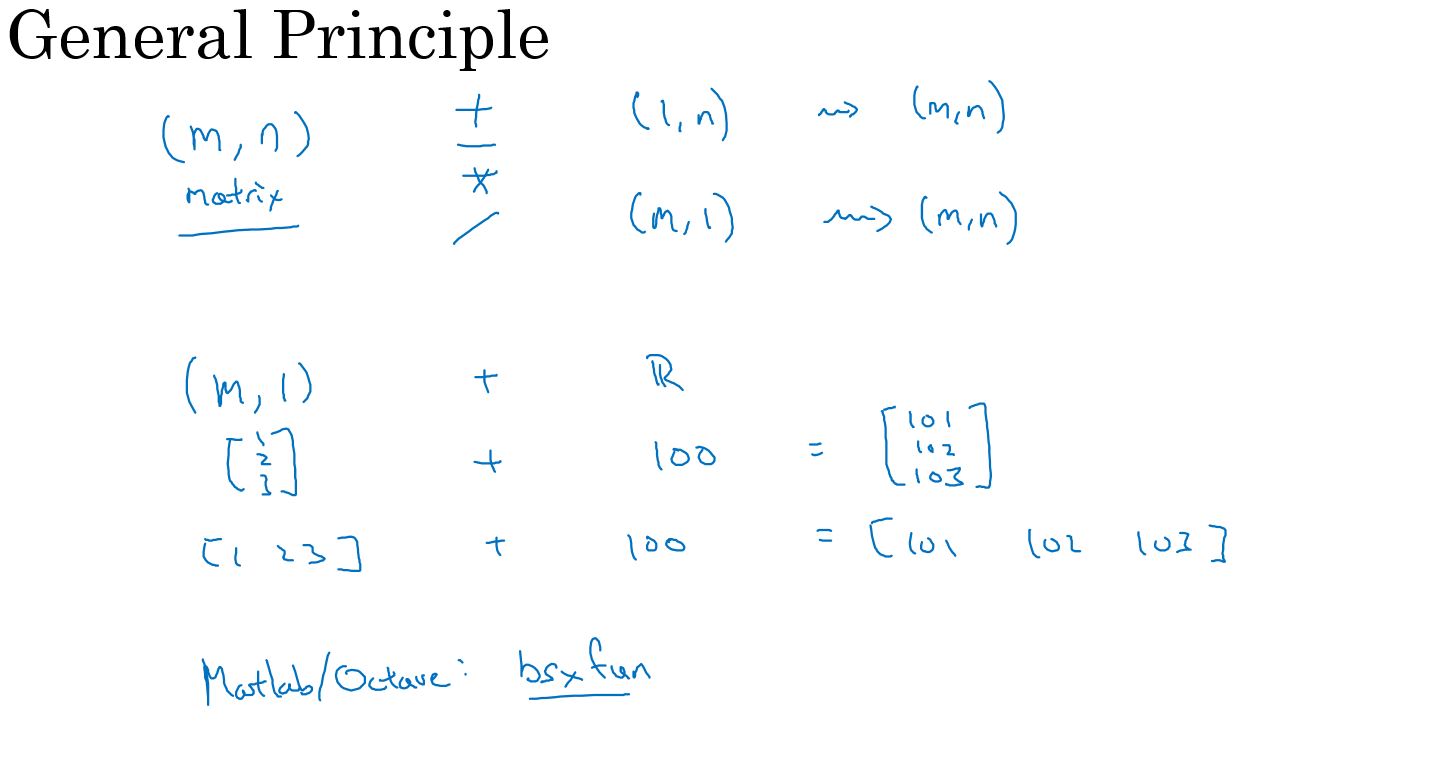 General Principle
(m, n) + (1, n) ⇝ (m, n)
matrix *
/ (m, 1) ⇝ (m, n)
(m, 1) + ℝ
[1 2 3] + 100 = [101 102 103]
[1 2 3] + 100 = [101 102 103]
Matlab/Octave: bsxfun